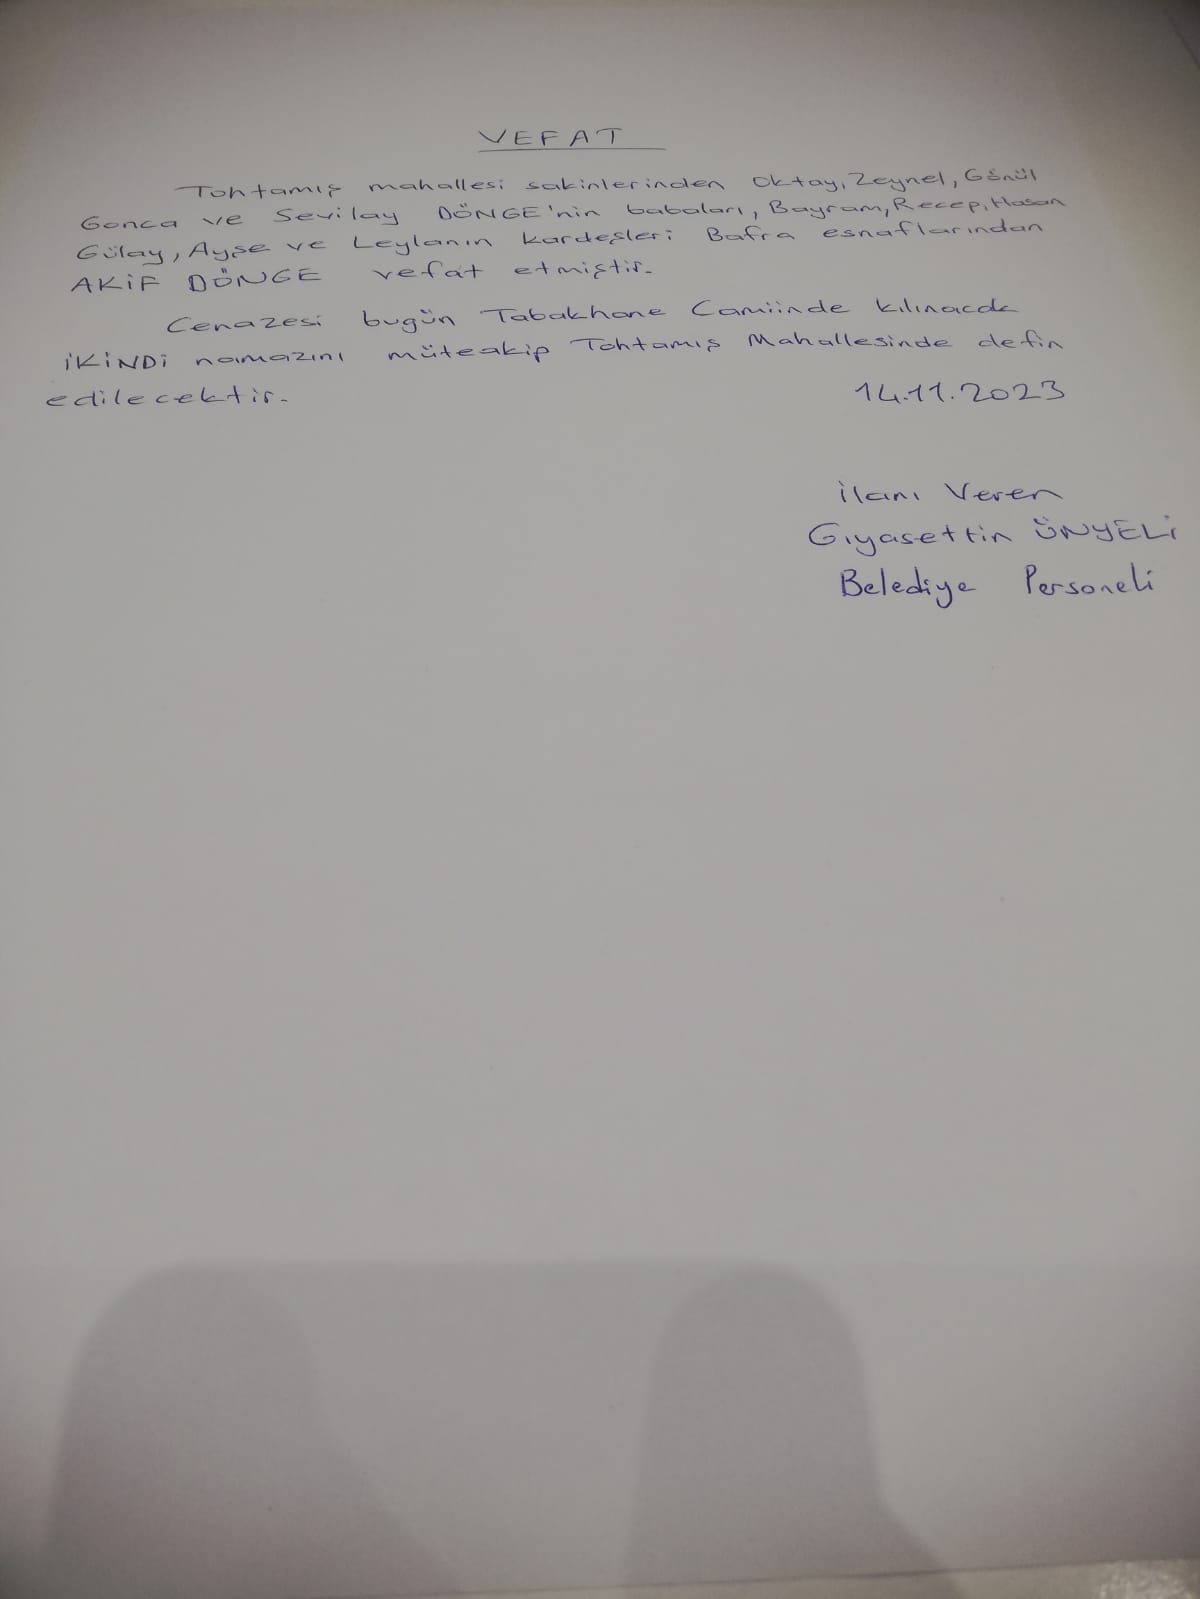 VEFAT
Tohtamış mahallesi sakinlerinden Oktay, Zeynel, Gönül
Gonca ve Sevilay DÖNGE'nin babaları, Bayram, Recep, Hasan
Gülay, Ayşe ve Leylanın kardeşleri Bafra esnaflarından
AKİF DÖNGE vefat etmiştir.
Cenazesi bugün Tabakhane Camiinde kılınacak
İKİNDİ namazını müteakip Tohtamış Mahallesinde defin
edilecektir. 14.11.2023
İlanı Veren
Gıyasettin ÜNYELİ
Belediye Personeli